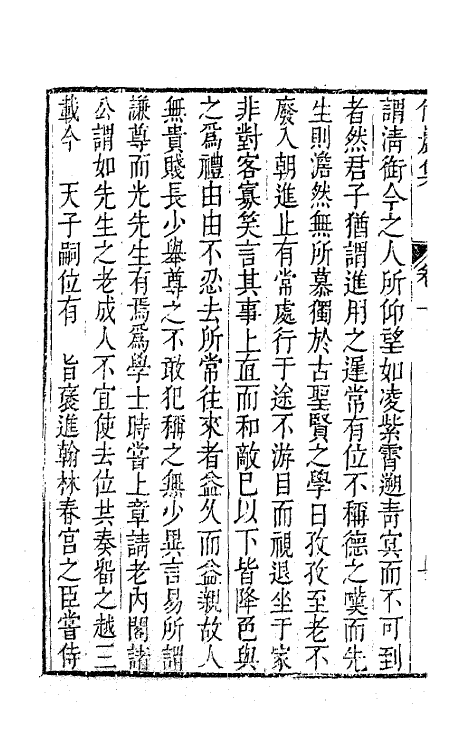 謂清銜今之人所仰望如凌紫霄遡青冥而不可到
者然君子猶謂進用之遲常有位不稱德之嘆而先
生則澹然無所慕獨於古聖賢之學日孜孜至老不
廢入朝進止有常處行于途不游目而視退坐于家
非對客寡笑言其事上直而和敵巳以下皆降色與
之爲禮由由不忍去所常往來者益久而益親故人
無貴賤長少舉尊之不敢犯稱之無少異言易所謂
謙尊而光先生有焉爲學士時嘗上章請老内閣諸
公謂如先生之老成人不宜使去位共奏留之越三
載今　天子嗣位有　旨褒進翰林春宮之臣嘗侍